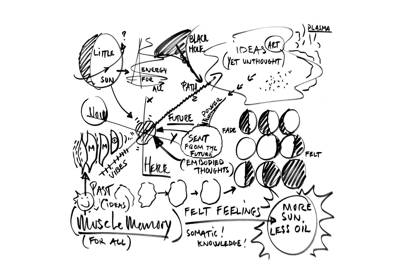 PLASMA
?
LITTLE
SUN
ENERGY
FOR
ALL
BLACK
HOLE
IDEAS
ART
(YET UNTHOUGHT)
PATH
POWER
NOW
FUTURE
X
X
SENT
FROM THE
FUTURE
(EMBODIED
THOUGHTS)
FADE
FELT
HERE
VIBES
PAST
(IDEAS)
(MUSCLE MEMORY)
(FOR ALL)
FELT FEELINGS
SOMATIC!
KNOWLEDGE!
MORE
SUN,
LESS OIL